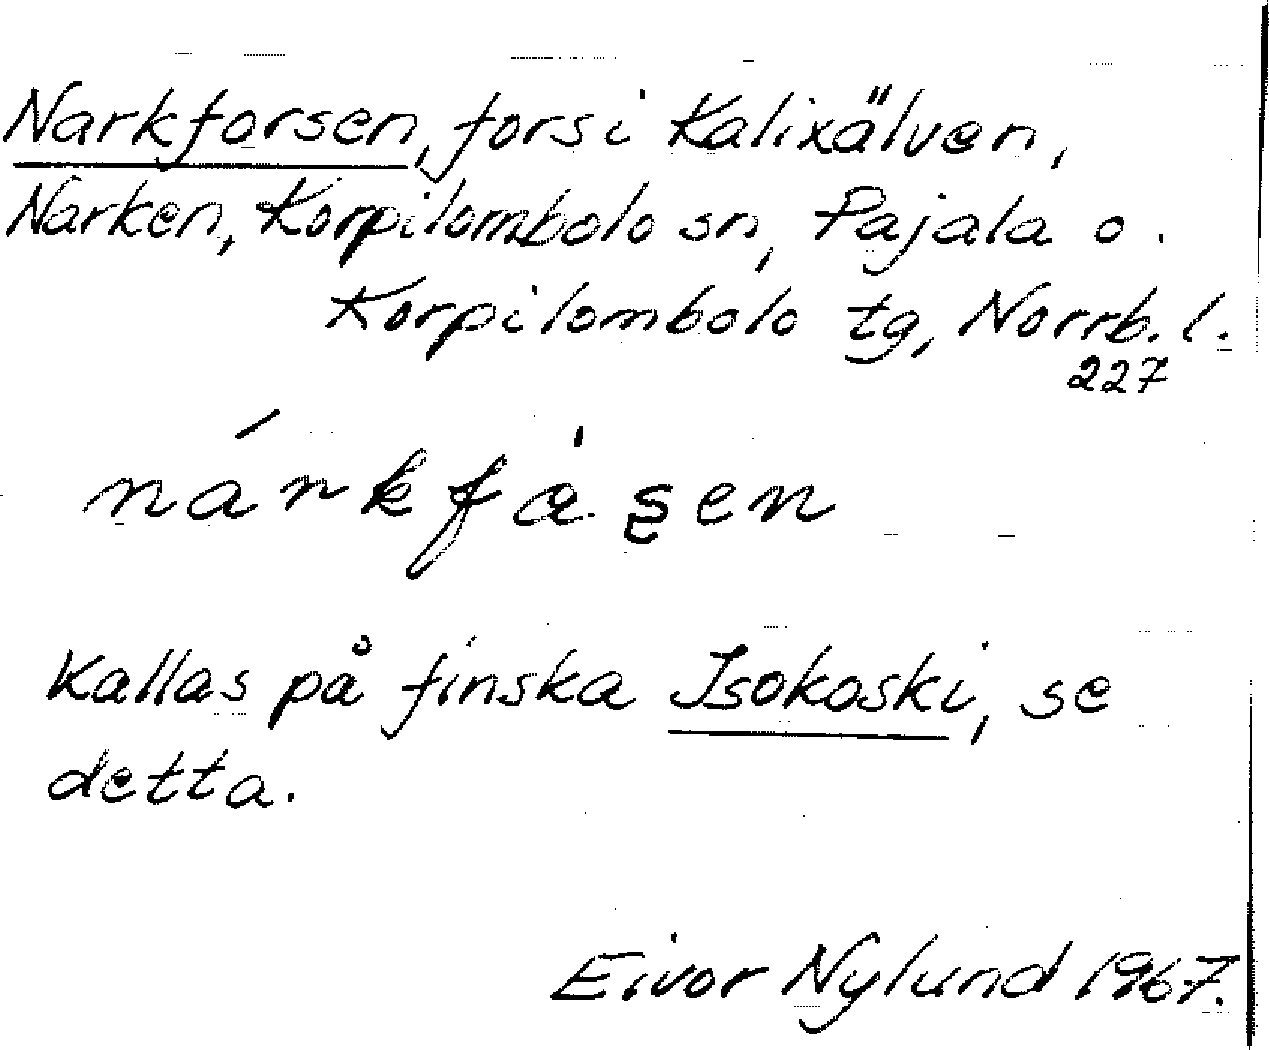 Narkforsen, fors i Kalixälven,
Narken, Korpilombolo sn, Pajala o.
Korpilombolo tg, Norrb. l.
227
Kallas på finska Isokoski, se
detta.
Eivor Nylund 1967.